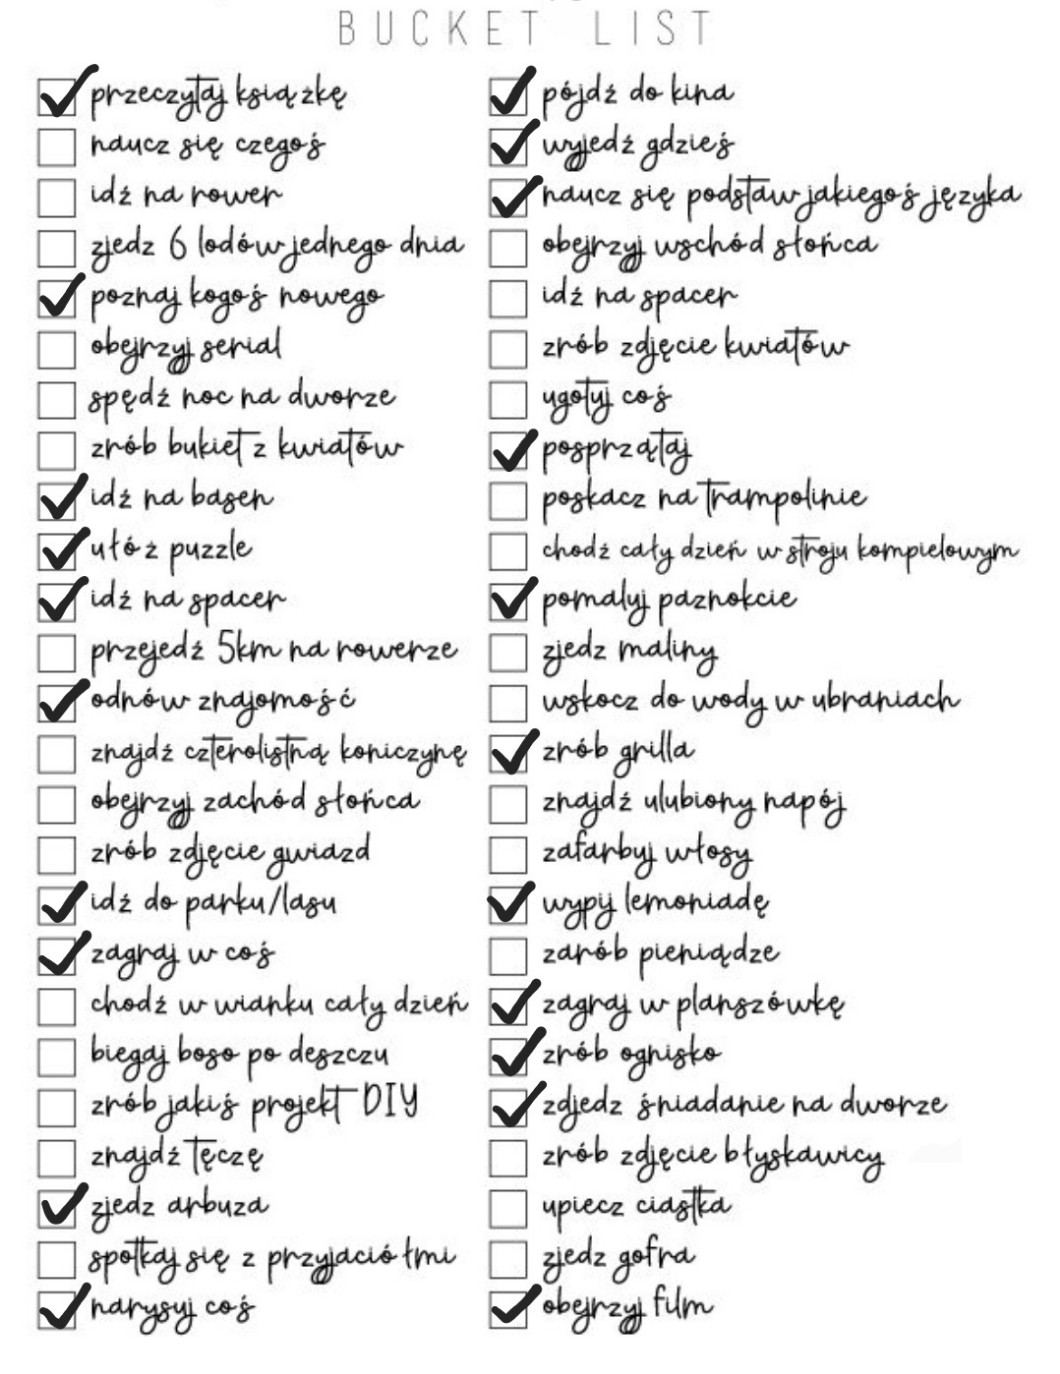 BUCKET LIST
przeczytaj książkę
naucz się czegoś
idź na rower
zjedz 6 lodów jednego dnia
poznaj kogoś nowego
obejrzyj serial
spędź noc na dworze
zrób bukiet z kwiatów
idź na basen
ułóż puzzle
idź na spacer
przejedź 5km na rowerze
odnów znajomość
znajdź czterolistną koniczynę
obejrzyj zachód słońca
zrób zdjęcie gwiazd
idź do parku/lasu
zagraj w coś
chodź w wianku cały dzień
biegaj boso po deszczu
zrób jakiś projekt DIY
znajdź tęczę
zjedz arbuza
spotkaj się z przyjaciółmi
narysuj coś
pójdź do kina
wyjedź gdzieś
naucz się podstaw jakiegoś języka
obejrzyj wschód słońca
idź na spacer
zrób zdjęcie kwiatów
ugotuj coś
posprzątaj
poskacz na trampolinie
chodź cały dzień w stroju kompielowym
pomaluj paznokcie
zjedz maliny
wskocz do wody w ubraniach
zrób grilla
znajdź ulubiony napój
zafarbuj włosy
wypij lemoniadę
zarób pieniądze
zagraj w planszówkę
zrób ognisko
zdjedz śniadanie na dworze
zrób zdjęcie błyskawicy
upiecz ciastka
zjedz gofra
obejrzyj film